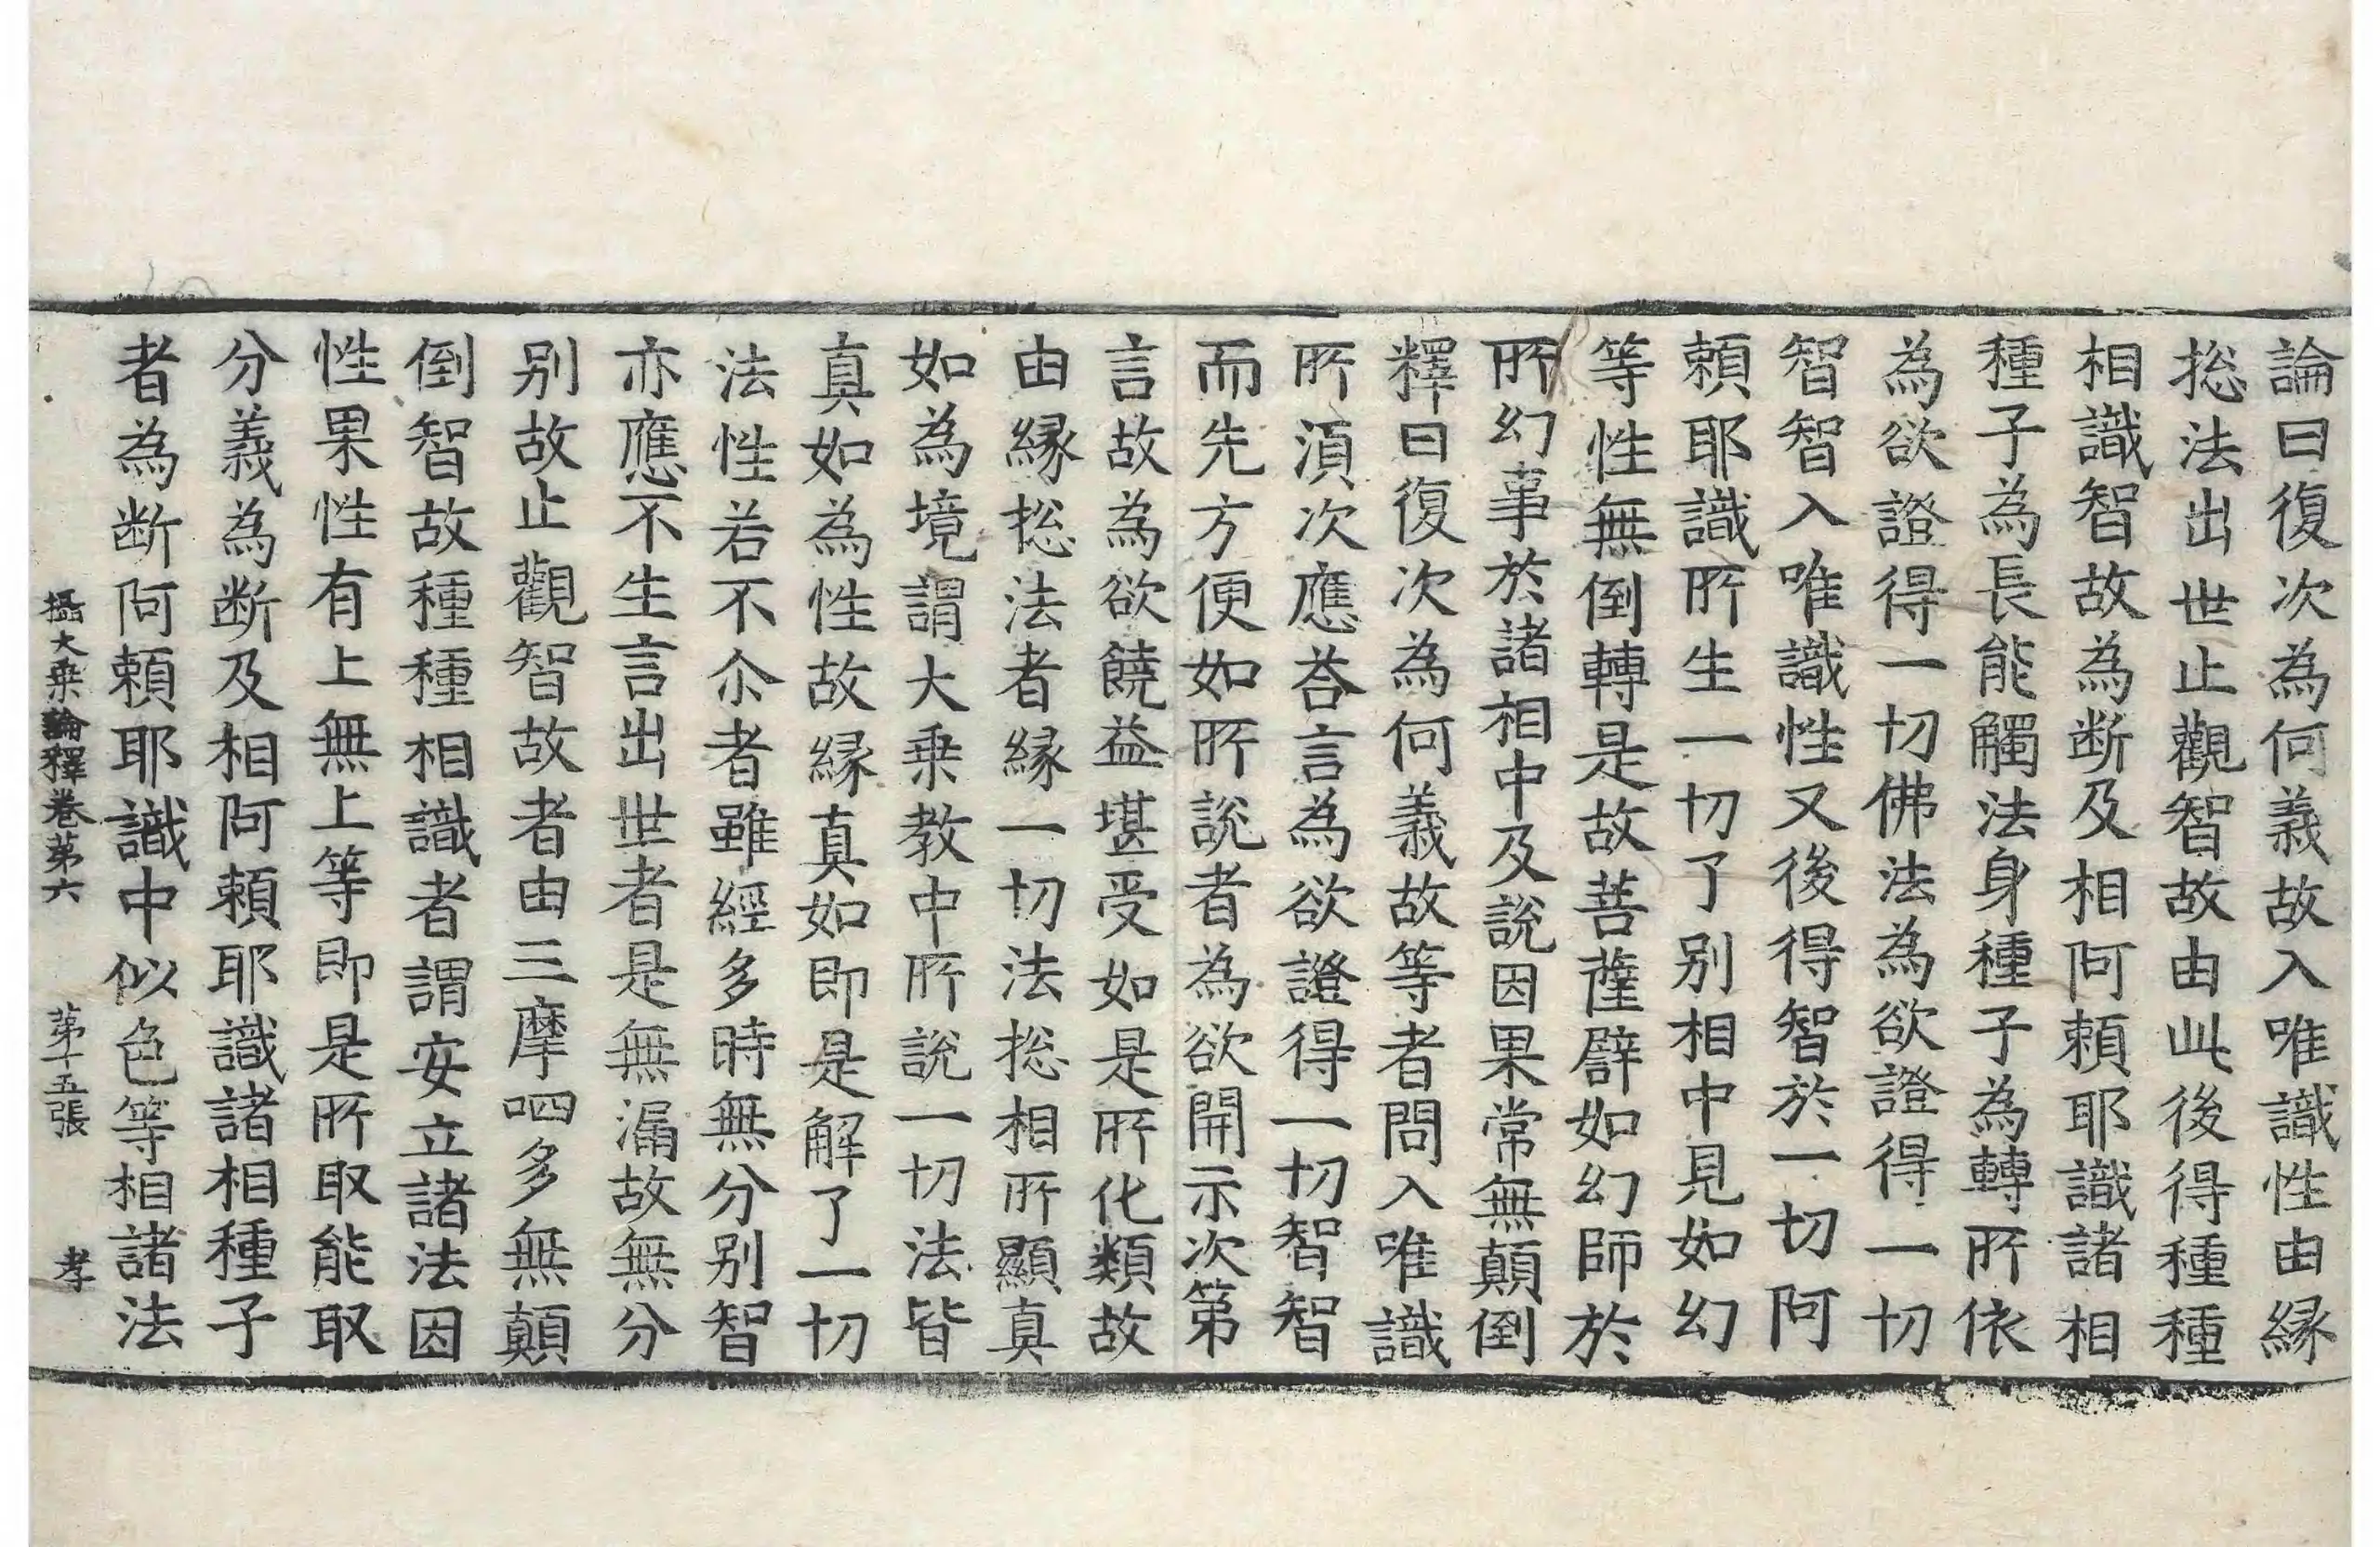 論曰復次為何義故入唯識性由縁
捴法出世止觀智故由此後得種種
相識智故為断及相阿頼耶識諸相
種子為長能觸法身種子為轉所依
為欲證得一切佛法為欲證得一切
智智入唯識性又後得智於一切阿
頼耶識所生一切了別相中見如幻
等性無倒轉是故菩薩譬如幻師於
所幻事於諸相中及說因果常無顛倒
釋曰復次為何義故等者問入唯識
所湏次應荅言為欲證得一切智智
而先方便如所說者為欲開示次第
言故為欲饒益堪受如是所化類故
由縁捴法者縁一切法捴相所顯真
如為境謂大乗教中所說一切法皆
真如為性故縁真如即是解了一切
法性若不尒者雖經多時無分別智
亦應不生言出世者是無漏故無分
別故止觀智故者由三摩呬多無顛
倒智故種種相識者謂安立諸法因
性果性有上無上等即是所取能取
分義為断及相阿頼耶識諸相種子
者為断阿頼耶識中似色等相諸法
攝大乗論釋卷苐六 苐十五張 孝